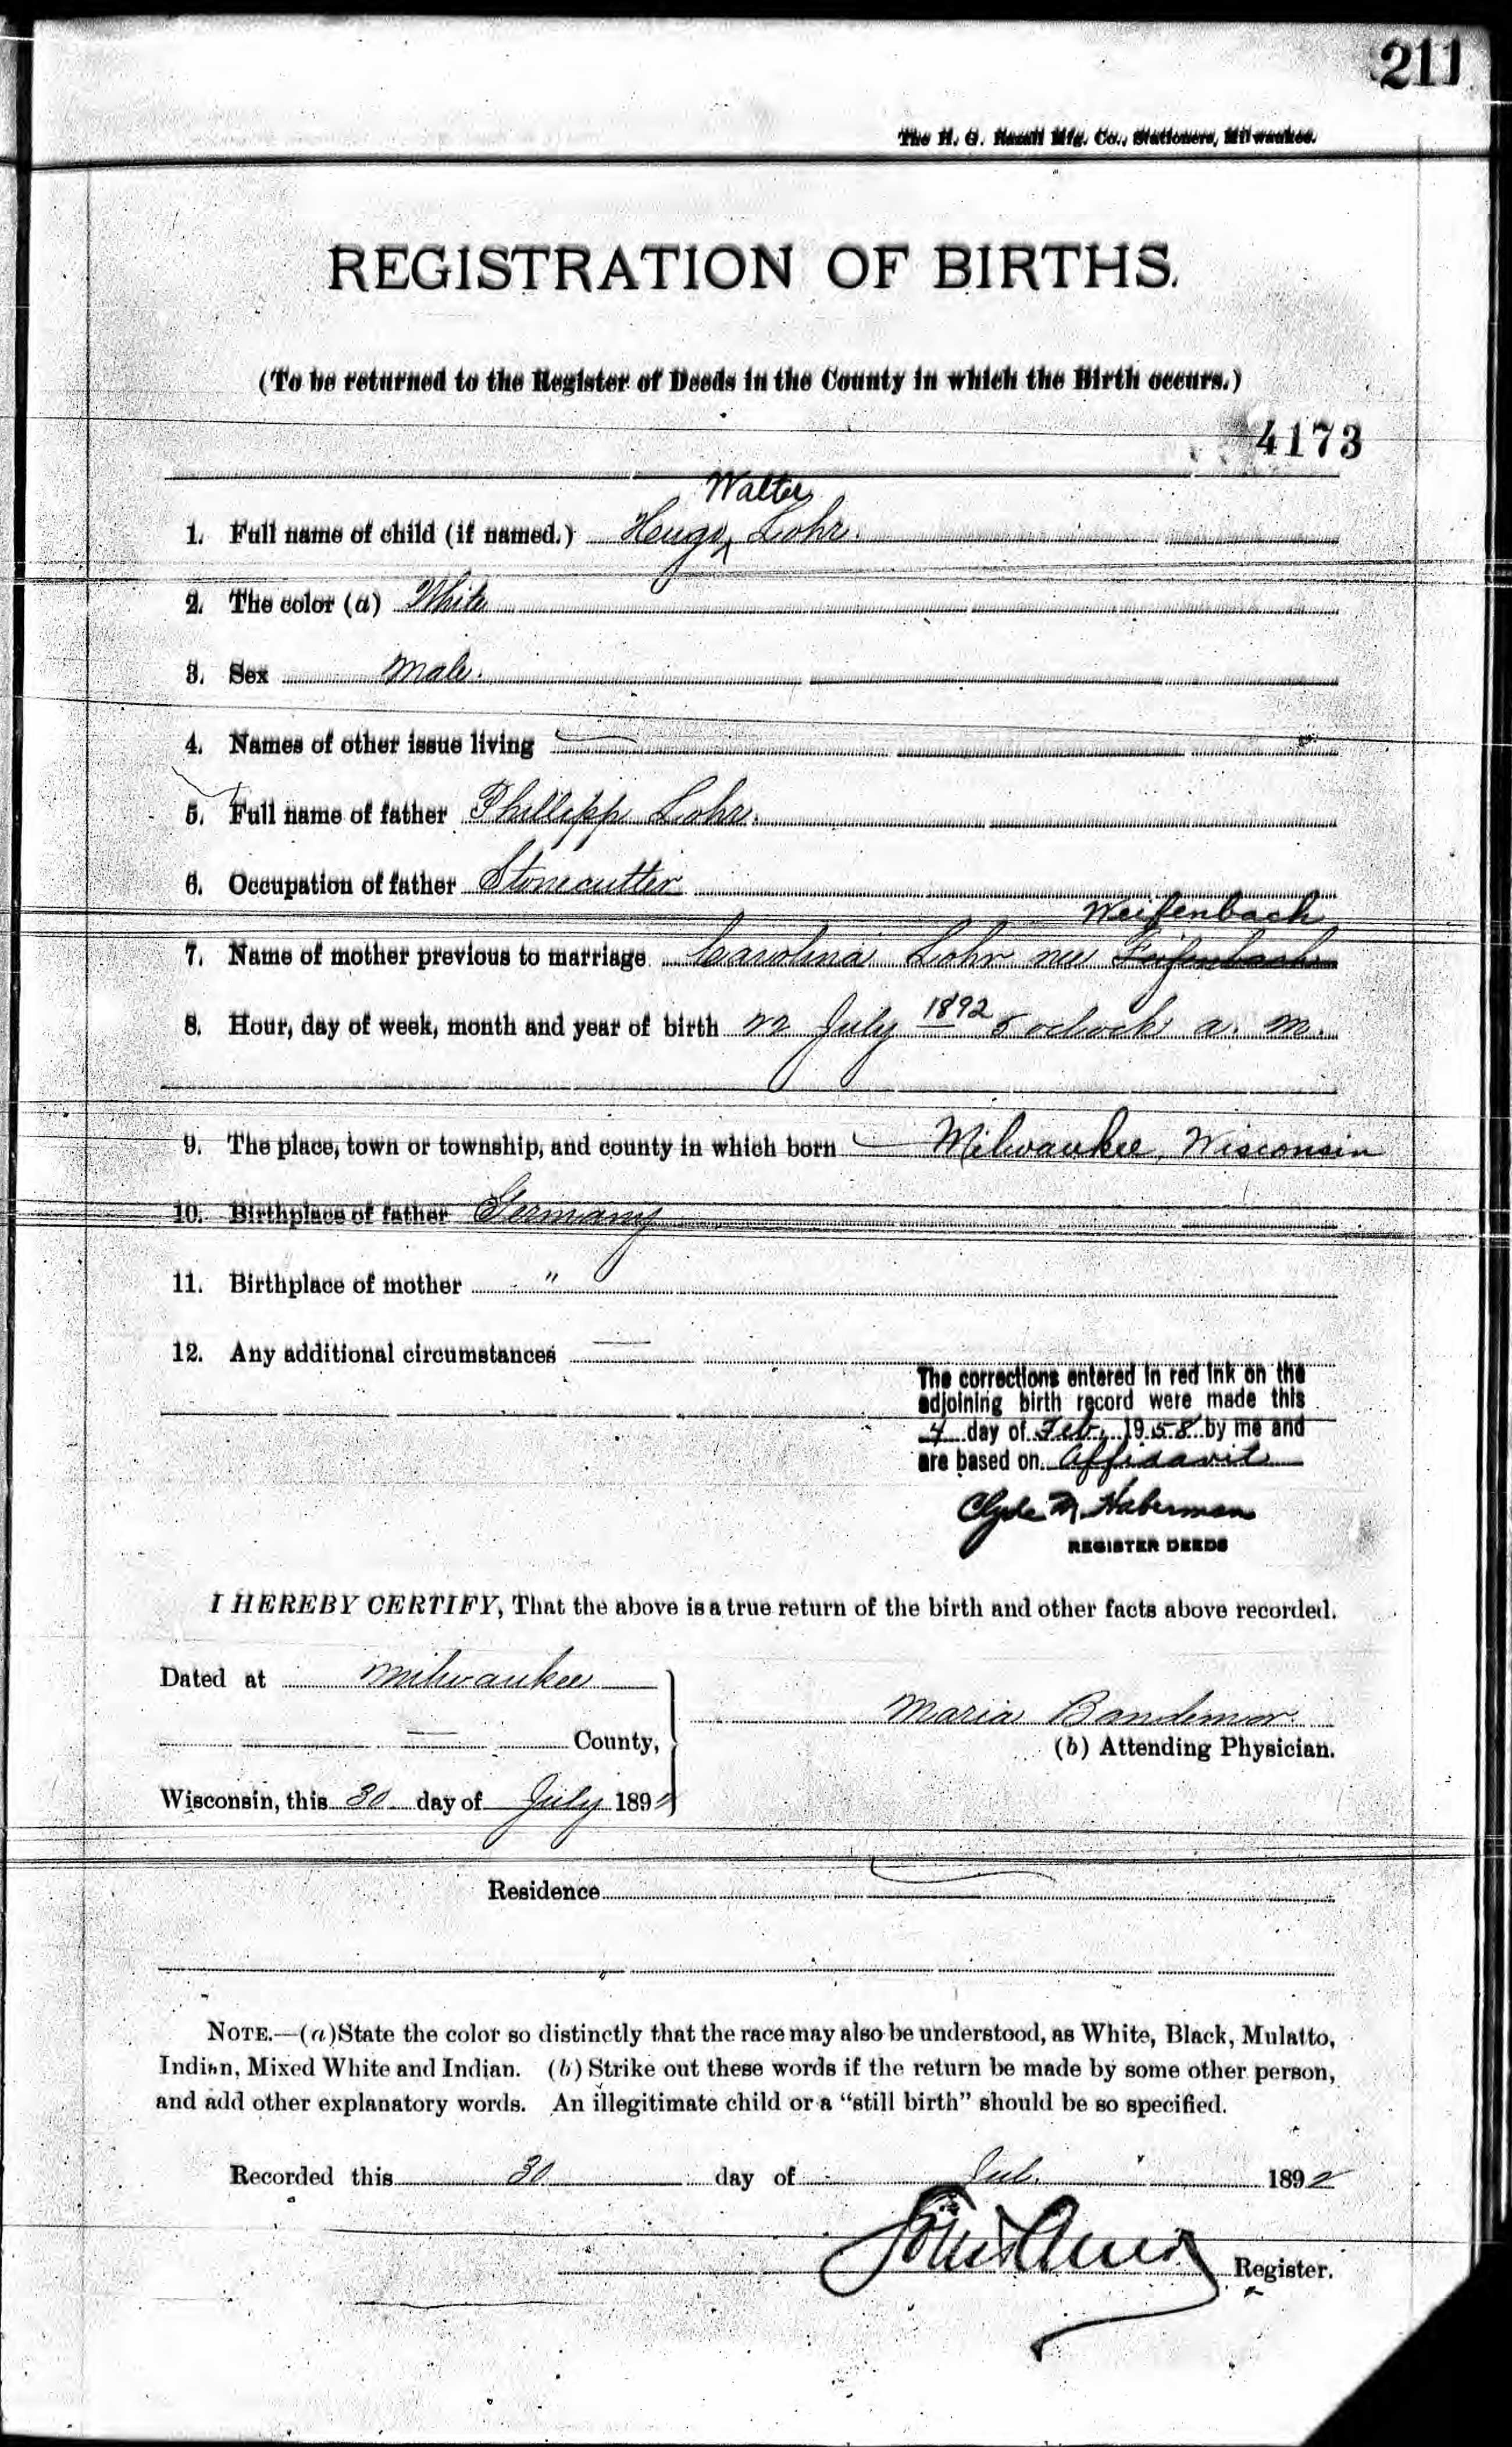 211
The H. G. Razall Mfg. Co., Stationers, Milwaukee.
REGISTRATION OF BIRTHS.
(To be returned to the Register of Deeds in the County in which the Birth occurs.)
4173
Walter
1. Full name of child (if named.) Heugo Lohr.
2. The color (a) White
3. Sex Male.
4. Names of other issue living —
5. Full name of father Phillipp Lohr.
6. Occupation of father Stonecutter
Weifenbach
7. Name of mother previous to marriage Carolina Lohr nee Feifenbach
8. Hour, day of week, month and year of birth 22 July 1892 5 oclock a. m.
9. The place, town or township, and county in which born — Milwaukee, Wisconsin
10. Birthplace of father Germany
11. Birthplace of mother "
12. Any additional circumstances —
The corrections entered in red ink on the
adjoining birth record were made this
4 day of Feb., 1958 by me and
are based on Affidavit
Clyde M. Haberman
REGISTER DEEDS
I HEREBY CERTIFY, That the above is a true return of the birth and other facts above recorded.
Dated at Milwaukee
Maria Bandemer
— County,
(b) Attending Physician.
Wisconsin, this 30 day of July 1892
Residence —
NOTE.—(a) State the color so distinctly that the race may also be understood, as White, Black, Mulatto,
Indian, Mixed White and Indian. (b) Strike out these words if the return be made by some other person,
and add other explanatory words. An illegitimate child or a “still birth” should be so specified.
Recorded this 30 day of Jul. 1892
Register.